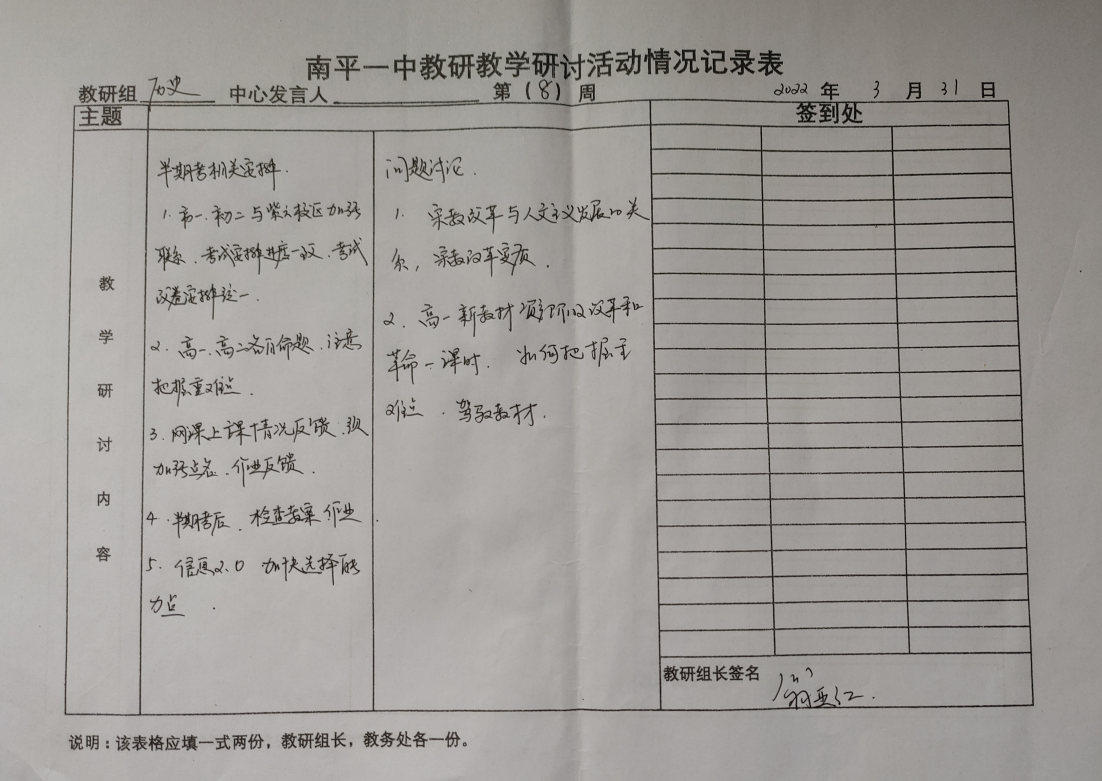 南平一中教研教学研讨活动情况记录表
教研组 历史 中心发言人 第（8）周 2022 年 3 月 31 日
主题
签到处
教学研讨内容
半期考相关安排.
1. 初一.初二与紫云校区加强
联系、考试安排进度一致、考试
改卷安排统一.
2. 高一.高二各自命题、注意
把握重难点.
3. 网课上课情况反馈、须
加强点名、作业反馈.
4. 半期考后、检查教案作业.
5. 信息2.0 加快选择能
力点.
问题讨论.
1. 宗教改革与人文主义发展的关
系，宗教改革实质.
2. 高一新教材 阶级改革和
革命一课时. 如何把握重
难点、驾驭教材.
教研组长签名
翁亚红.
说明：该表格应填一式两份，教研组长，教务处各一份。